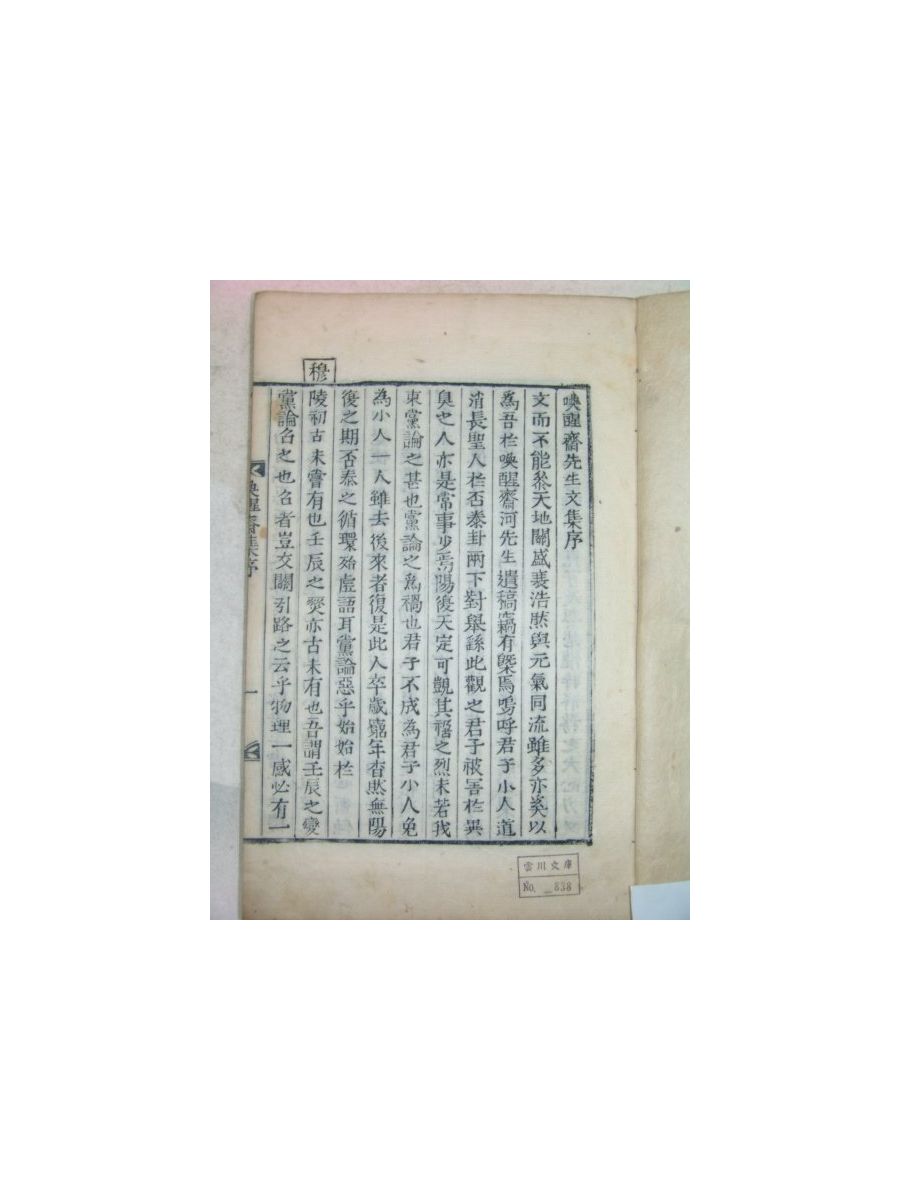 喚醒齋先生文集序
文而不能於天地關盛衰浩然與元氣同流雖多亦奚以
為吾於喚醒齋河先生遺稿竊有槩焉嗚呼君子小人道
消長聖人於否泰卦兩下對擧繇此觀之君子被害於異
臭也人亦是常事少焉陽復天定可覩其禧之烈未若我
東黨論之甚也黨論之爲禍也君子不成為君子小人免
為小人一人雖去後來者復是此人卒歲窮年杳然無陽
復之期否泰之循環殆虛語耳黨論惡乎始始於
穆
陵初古未嘗有也壬辰之燹亦古未有也吾謂壬辰之變
黨論召之也召者豈交關引路之云乎物理一感必有一
喚醒齋集序
一
雲川文庫
No. 838